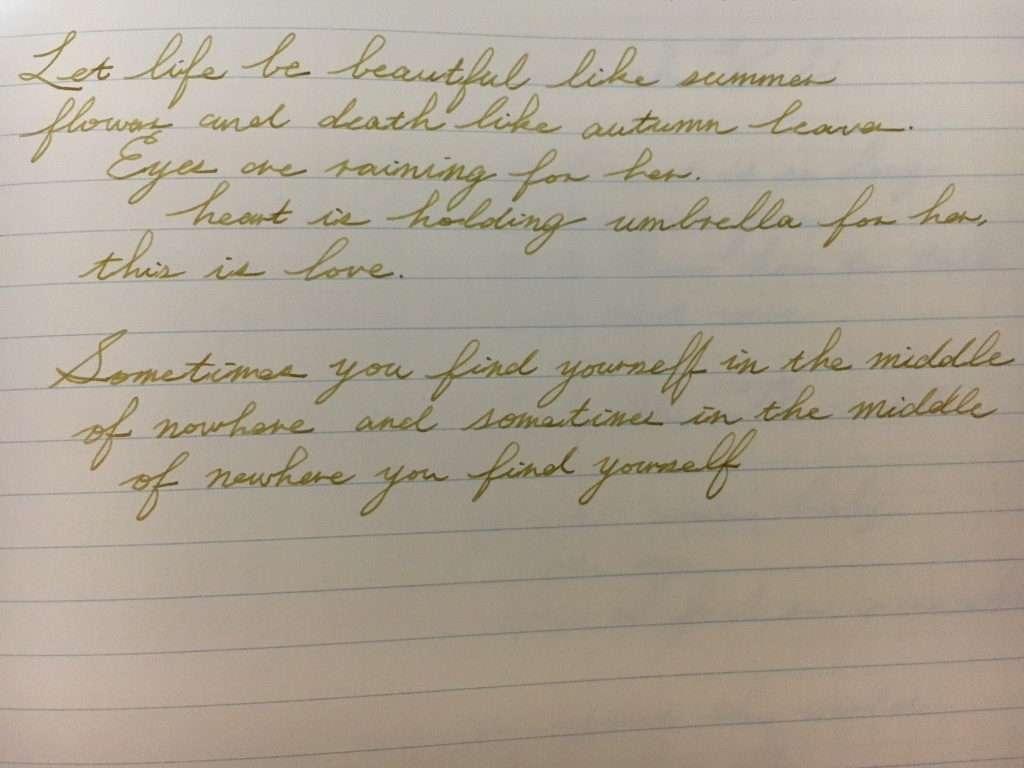 Let life be beautiful like summer
flowers and death like autumn leaves.
Eyes are raining for her.
heart is holding umbrella for her,
this is love.
Sometimes you find yourself in the middle
of nowhere and sometimes in the middle
of nowhere you find yourself